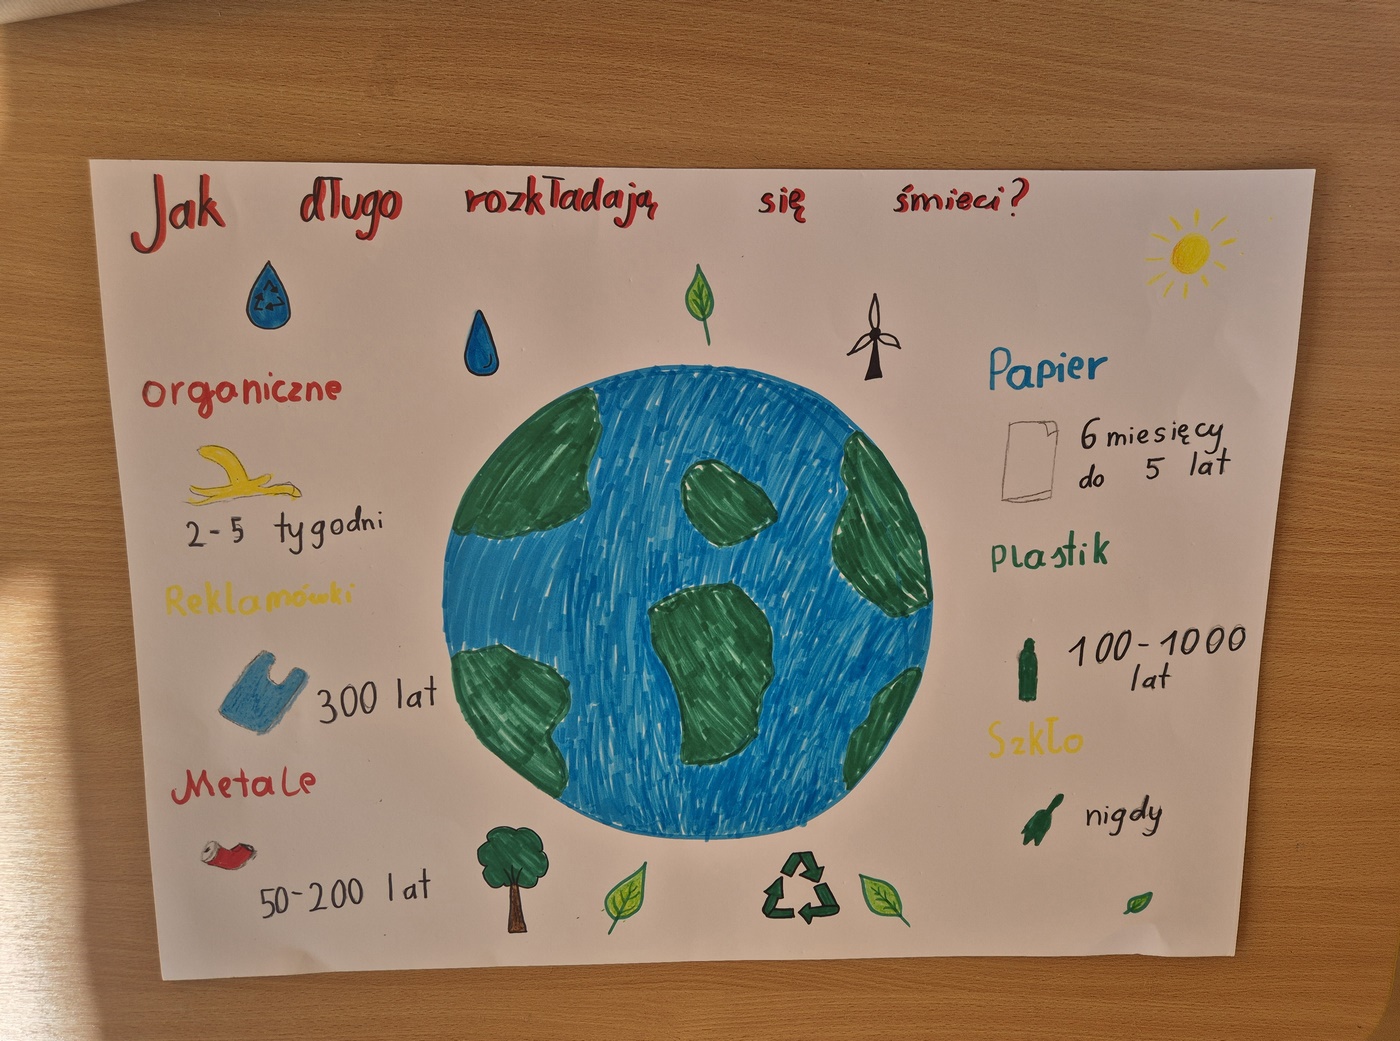 Jak długo rozkładają się śmieci?
organiczne
2-5 tygodni
Reklamówki
300 lat
Metale
50-200 lat
Papier
6 miesięcy
do 5 lat
plastik
100-1000
lat
Szkło
nigdy